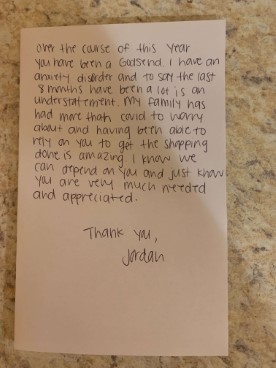 over the cause of this year
you have been a Godsend. I have an
anxiety disorder and to say the last
8 months have been a lot is an
understatement. My family has
had more than covid to worry
about and having been able to
rely on you to get the shopping
done is amazing. I know we
can depend on you and just know
you are very much needed
and appreciated.
Thank you,
Jordan